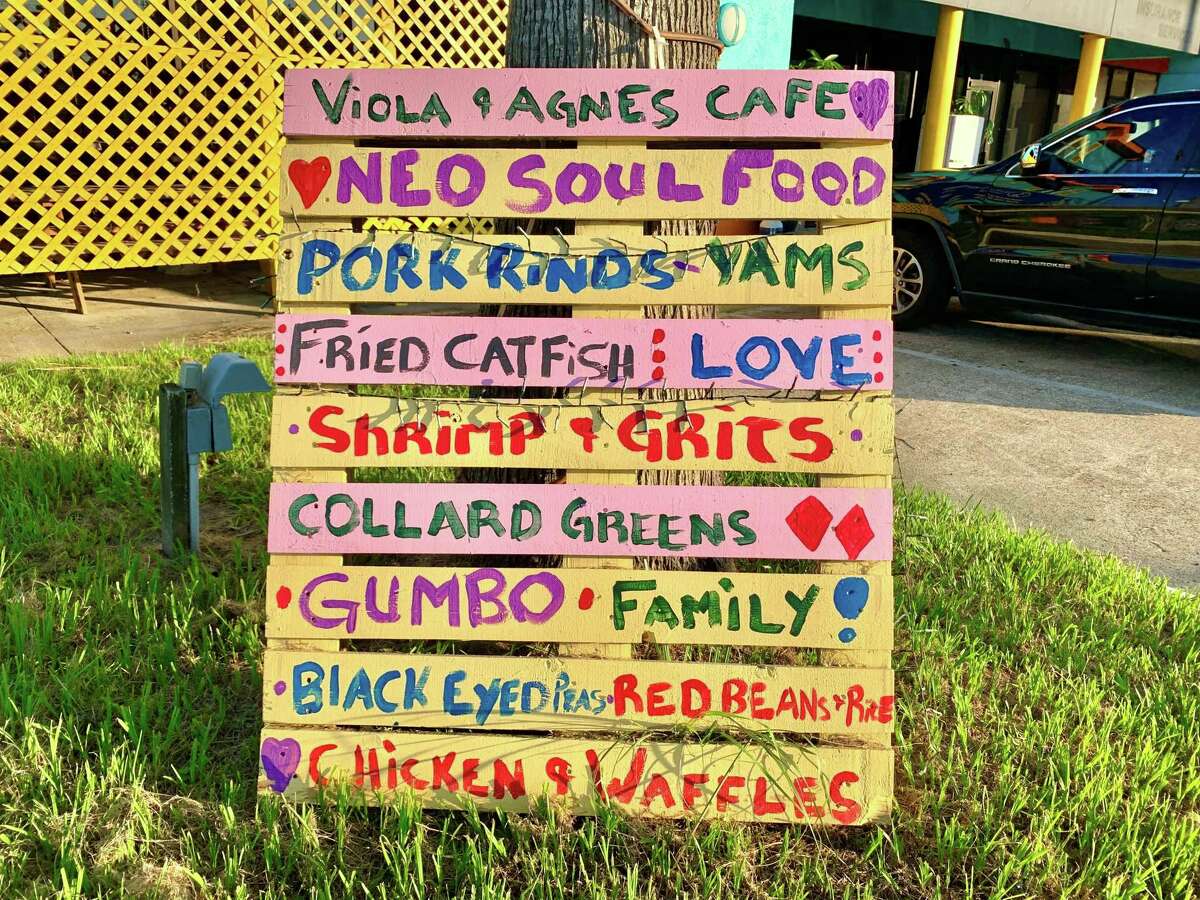 INSURANCE
VIOLA & AGNES CAFE
NEO SOUL FOOD
PORK RINDS - YAMS
FRIED CATFISH LOVE
SHRIMP & GRITS
COLLARD GREENS
GUMBO • FAMILY!
BLACK EYED PEAS • RED BEANS & RICE
CHICKEN & WAFFLES
GRAND CHEROKEE